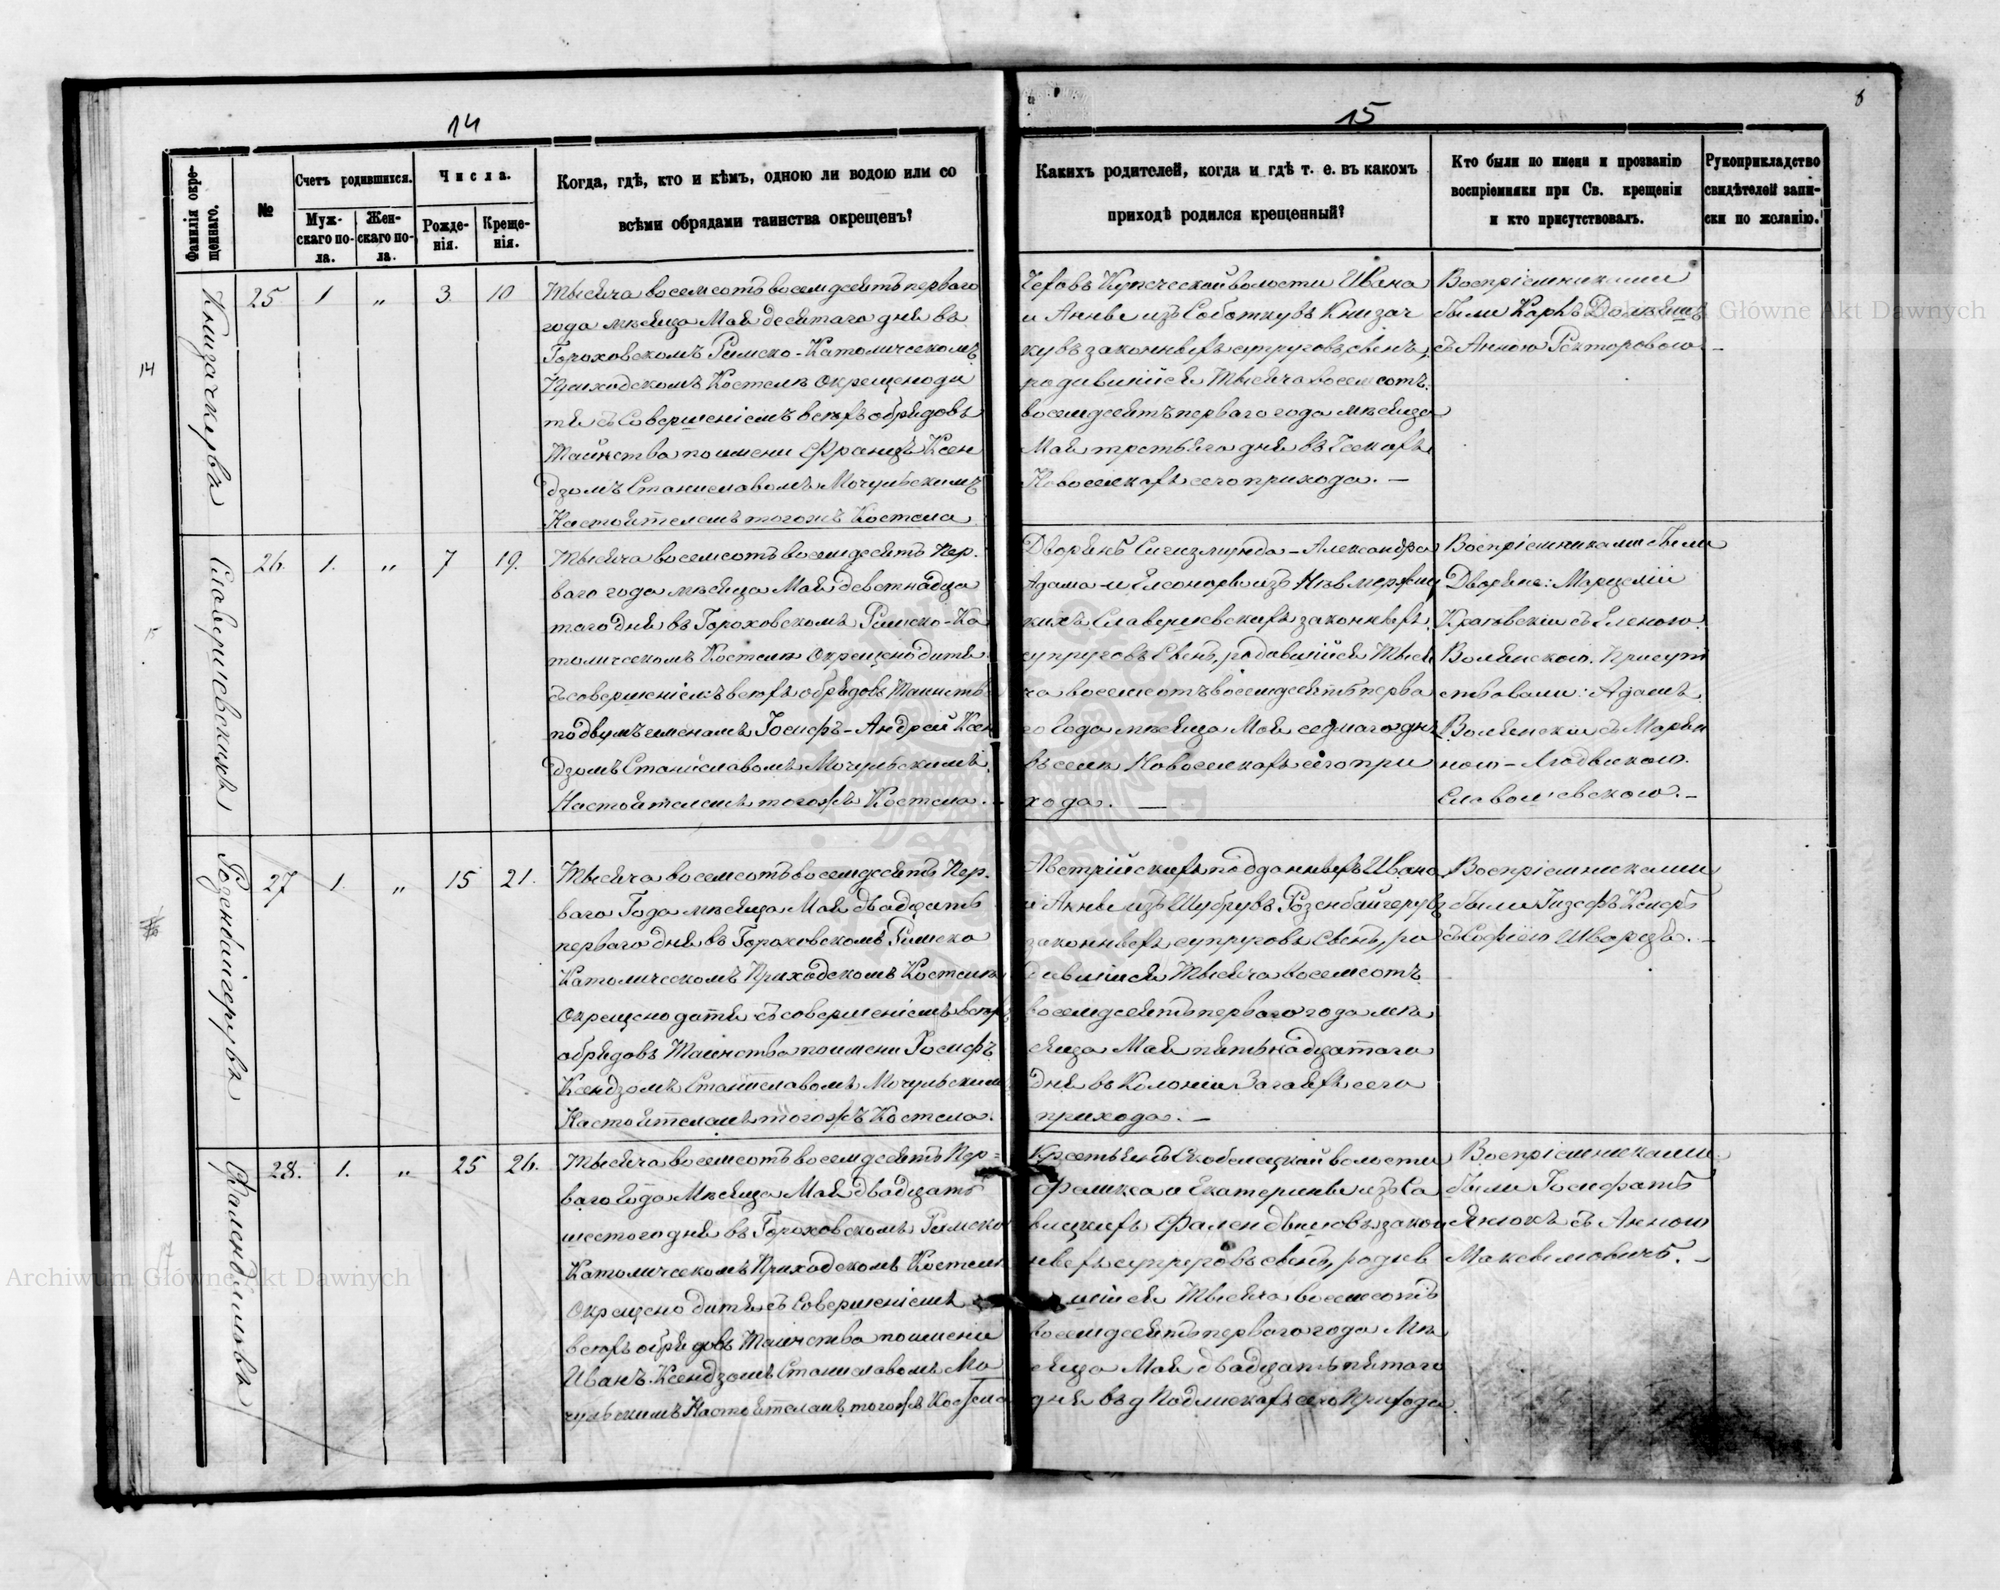 14
Фамилія окре-
щеннаго.
№
Счетъ родившихся.
Муж-
скаго по-
ла.
Жен-
скаго по-
ла.
Числа.
Рожде-
нія.
Креще-
нія.
Когда, гдѣ, кто и кѣмъ, одною ли водою или со
всѣми обрядами таинства окрещенъ?
25 1 „ 3 10
Тысяча восемсотъ восемдесятъ перваго
года мѣсяца Мая десятаго дня въ
Гороховскомъ Римско-Католическомъ
Приходскомъ Костелѣ окрещено ди
тя съ Совершеніемъ всѣхъ обрядовъ
Таинства по имени Францъ Ксен
дзомъ Станиславомъ Мочульскимъ
Настоятелемъ тогожъ Костела
14
26. 1. „ 7 19.
Тысяча восемсотъ восемдесятъ Пер-
ваго года мѣсяца Мая девтнадца
таго дня въ Гороховскомъ Римско-Ка
толическомъ Костелѣ Окрещено дитя
съ совершеніемъ всѣхъ обрядовъ Таинств
подвумъ именамъ Іосифъ-Андрей Ксен
дзомъ Станиславомъ Мочульскимъ
Настоятелемъ тогожъ Костела.
15
27 1. „ 15 21.
Тысяча восемсотъ восемдесятъ Пер-
ваго Года мѣсяца Мая двадцать
перваго дня въ Гороховскомъ Римско
Католическомъ Приходскомъ Костелѣ
Окрещено дитя съ совершеніемъ всѣхъ
обрядовъ Таинства по имени Іосифъ
Ксендзомъ Станиславомъ Мочульскимъ
Настоятелемъ тогожъ Костела.
28. 1. „ 25 26.
Тысяча восемсотъ восемдесятъ Пер-
ваго Года Мѣсяца Мая двадцать
шестого дня въ Гороховскомъ Римско
Католическомъ Приходскомъ Костелѣ
Окрещено дитя съ Совершеніемъ
всѣхъ обрядовъ Таинства по имени
Иванъ Ксендзомъ Станиславомъ Мо
чульскимъ Настоятелемъ тогожъ Костела
17
15
8
Какихъ родителей, когда и гдѣ т. е. въ какомъ
приходѣ родился крещенный?
Кто были по имени и прозванію
воспріемники при Св. крещеніи
и кто присутствовалъ.
Рукоприкладство
свидѣтелей запи-
ски по желанію.
Чеховъ Купической волости Ивана
и Анны изъ
законныхъ супруговъ сынъ,
родившійся Тысяча восемсотъ
восемдесятъ перваго года мѣсяца
Мая третьяго дня въ Чехахъ
Новоселкахъ сего прихода. —
Воспріемниками
были Карлъ
съ Анною Ректоровою. —
Дворянъ Сигизмунда-Александра
Адама-и Елеоноры изъ
Славершевскихъ законныхъ
супруговъ Сынъ, родившійся Тыся
ча восемсотъ восемдесятъ перва
го Года мѣсяца Мая седмаго дня
въ селѣ Новоселкахъ сего при
хода. —
Воспріемниками были
Дворяне: Марцелій
съ Еленою
Волянскою. Присут
ствовали: Адамъ
Волянски съ
ною-Людвикою
Австрійскихъ подданныхъ Ивана
и Анны изъ Шубрувъ Розенбайгерувъ
законныхъ супруговъ Сынъ, ро
дившійся Тысяча Восемсотъ
восемдесятъ перваго года мѣ
сяца Мая пятьнадцатаго
дня въ Колоніи Загаяхъ сего
прихода. —
Воспріемниками
были Іозефъ
съ Софіею Шварцъ. —
Крестьянъ Скобелецкой волости
Феликса и Екатерины изъ Са
вицкихъ закон
ныхъ супруговъ сынъ, родив
шійся Тысяча восемсотъ
восемдесятъ перваго года Мѣ
сяца Мая двадцать пятаго
дня въ д Подлискахъ сего Прихода.
Воспріемниками
были Іосифатъ
съ Анною
Максимовичъ. —
Archiwum Główne Akt Dawnych
Archiwum Główne Akt Dawnych